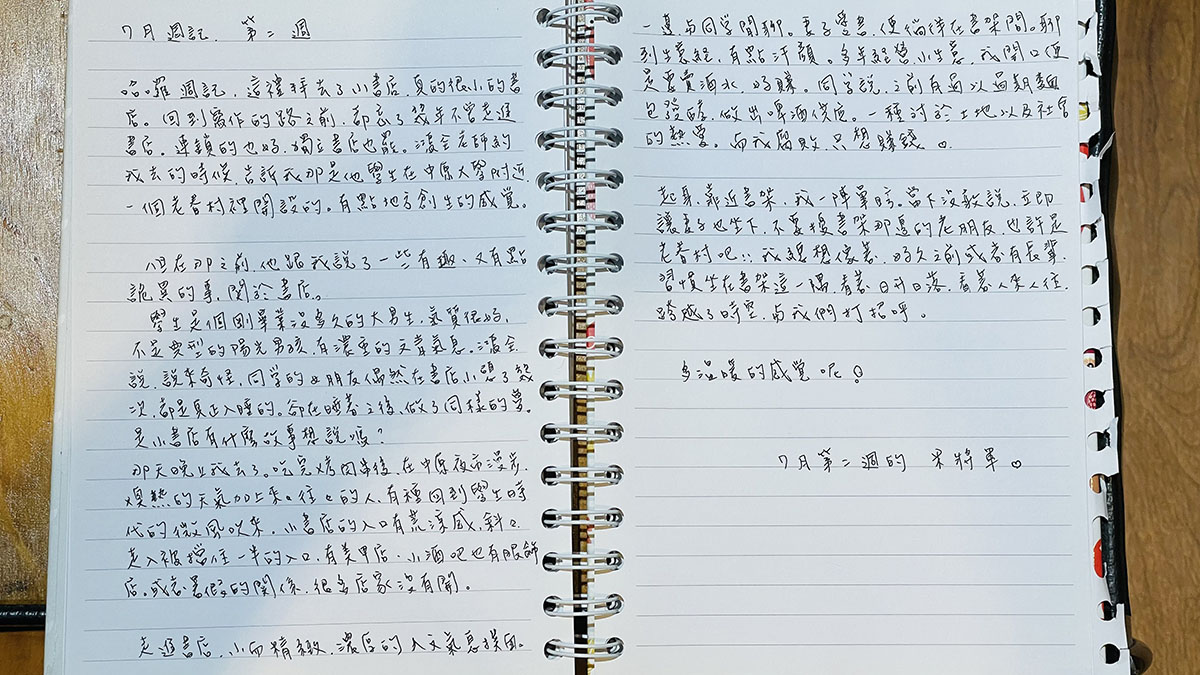 7月週記.第二週
哈羅週記.這禮拜去了小書店.真的很小的書
店。回到寫作的路之前.都忘了幾年不曾走進
書店.連鎖的也好.獨立書店也罷。老師約
我去的時候.告訴我那是他學生在中原大學附近
一個老眷村裡開設的。有點地方創生的感覺。
但在那之前.他跟我說了一些有趣、又有點
詭異的事.關於書店。
學生是個剛畢業沒多久的大男生.氣質很好.
不是典型的陽光男孩.有濃重的文青氣息。
說.說來奇怪.同學的女朋友偶然在書店小憩了幾
次.都是真正入睡的。卻在睡著之後、做了同樣的夢。
是小書店有什麼故事想說嗎?
那天晚上我去了。吃完烤肉串後.在中原夜市漫步.
燠熱的天氣加上來來往往的人.有種回到學生時
代的微風吹來.小書店的入口有荒涼感.斜斜
走入被擋住一半的入口.有美甲店、小酒吧也有服飾
店。或者暑假的關係.很多店家沒有開。
走進書店.小而精緻.濃厚的人文氣息撲面。
一邊与同学閒聊。妻子愛書.便徜徉在書架間。聊
到生意經.有點汗顏。多年經營小生意.我開口便
是要賣酒水.好賺。同学説.之前有過以過期麵
包發酵.做出啤酒供應。一種對於土地以及社會
的熱愛。而我腐敗.只想賺錢。
起身.靠近書架.我一陣暈眩。當下没敢説.立即
讓妻子也坐下.不要擾書架那邊的老朋友.也許是
老眷村吧!!我總想像著.好久之前或者有長輩.
習慣坐在書架這一隅.看著日升日落.看著人來人往.
跨越了時空.与我們打招呼。
多溫暖的感覚呢!
7月第二週的 米將軍。